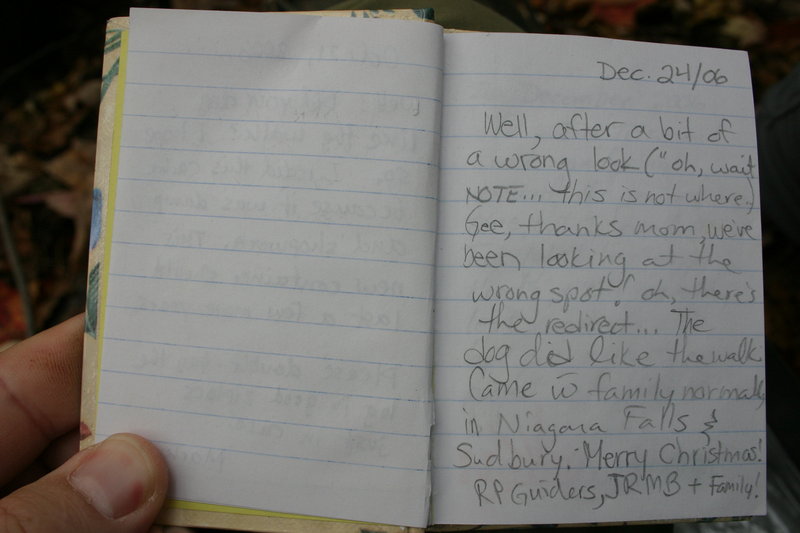 Dec. 24/06
Well, after a bit of
a wrong look ("oh, wait
NOTE... this is not where.)
Gee, thanks mom, we've
been looking at the
wrong spot! oh, there's
the redirect... The
dog did like the walk.
Came w family normally
in Niagara Falls &
Sudbury. Merry Christmas!
RP Guiders, JRMB + Family!